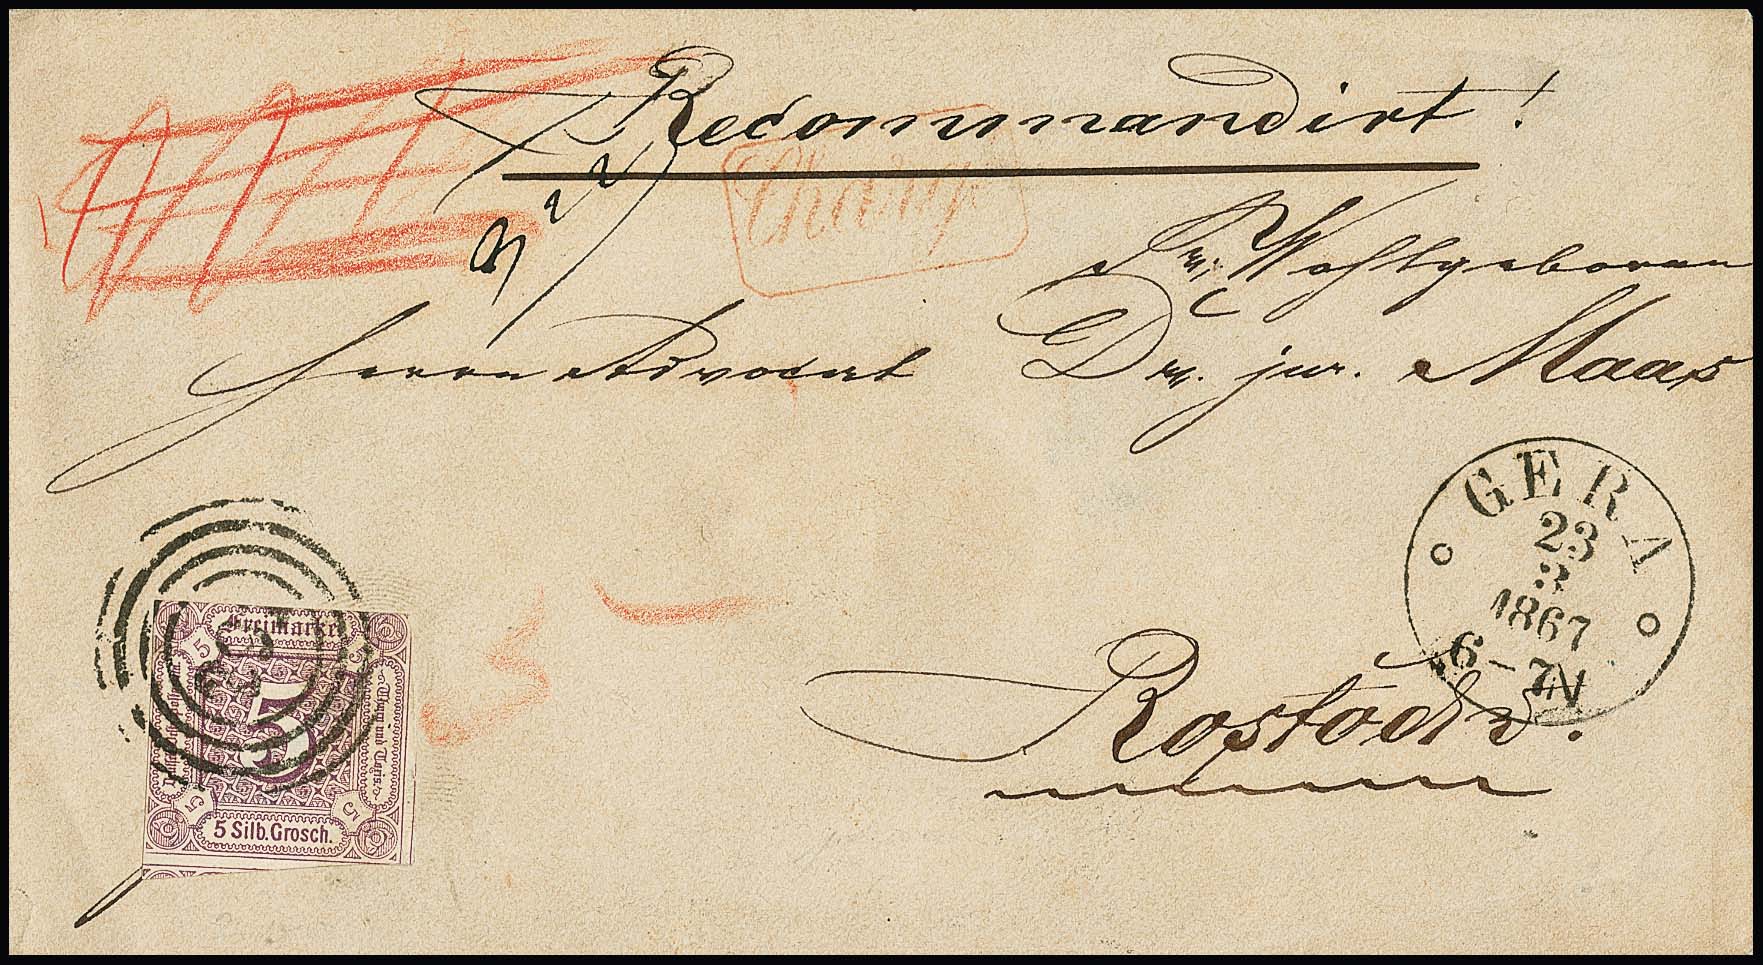 Recommandirt!
322
Charg
Sr. Wohlgeboren
Herrn Advocat Dr. jur. Maas
GERA
23
3
1867
6-7N
Rostock.
Freimarke
5 5
Thurn und Taxis.
5
5 5
5 Silb.Grosch.